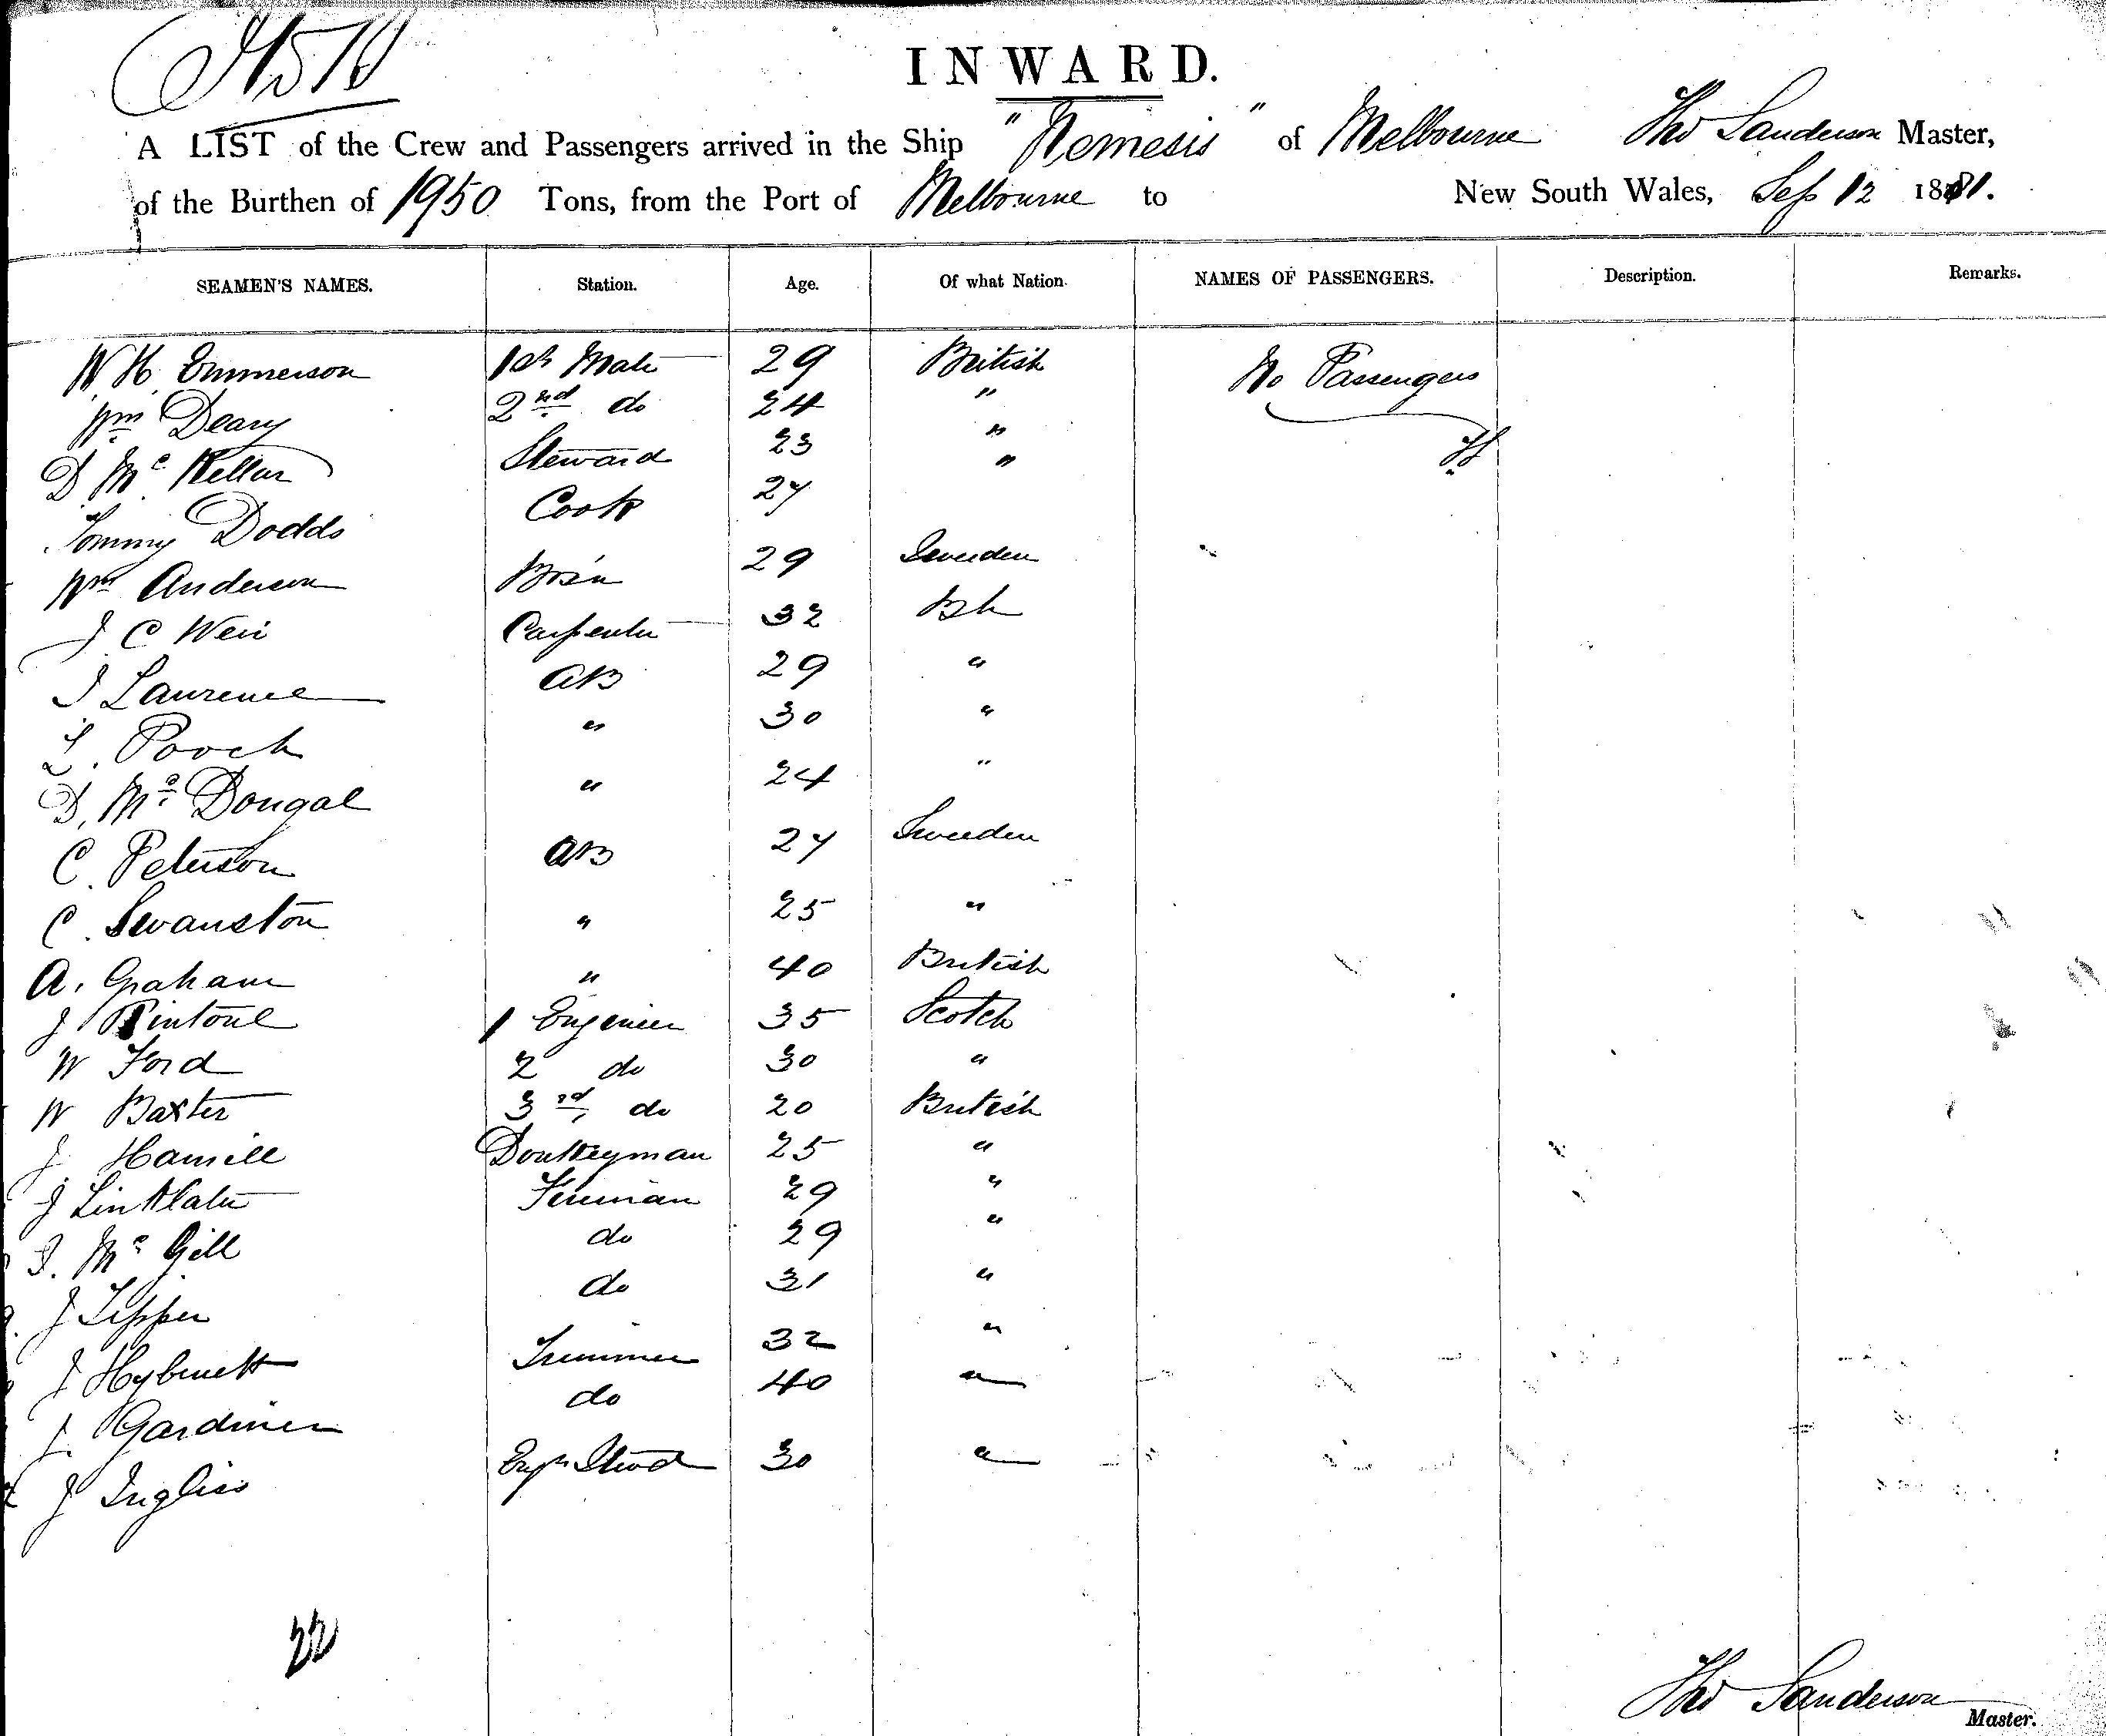 INWARD.
A LIST of the Crew and Passengers arrived in the Ship "Nemesis" of Melbourne Tho Sanderson Master,
of the Burthen of 1950 Tons, from the Port of Melbourne to New South Wales, Sep 12 1881.
SEAMEN'S NAMES. Station. Age. Of what Nation. NAMES OF PASSENGERS. Description. Remarks.
W H Emmerson 1st Mate 29 British No Passengers
Wm Deary 2nd do 24 "
D Mc Kellar Steward 23 "
Tommy Dodds Cook 27 "
Wm Anderson Bosn 29 Sweeden
J C Weir Carpenter 32 Bh
J Laurence AB 29 "
L. Pooch " 30 "
D. Mc Dougal " 24 "
C. Peterson AB 27 Sweeden
C. Swanston " 25 "
A. Graham " 40 British
J Rintoul 1 Engineer 35 Scotch
W Ford 2 do 30 "
W Baxter 3rd do 20 British
J Hamill Donkeyman 25 "
J Linklater Fireman 29 "
J. Mc Gill do 29 "
J Tepper do 31 "
J Trimmer 32 "
J. Gardiner do 40 "
J Ingliss Engrs Stwd 30 "
22
Tho Sanderson
Master.